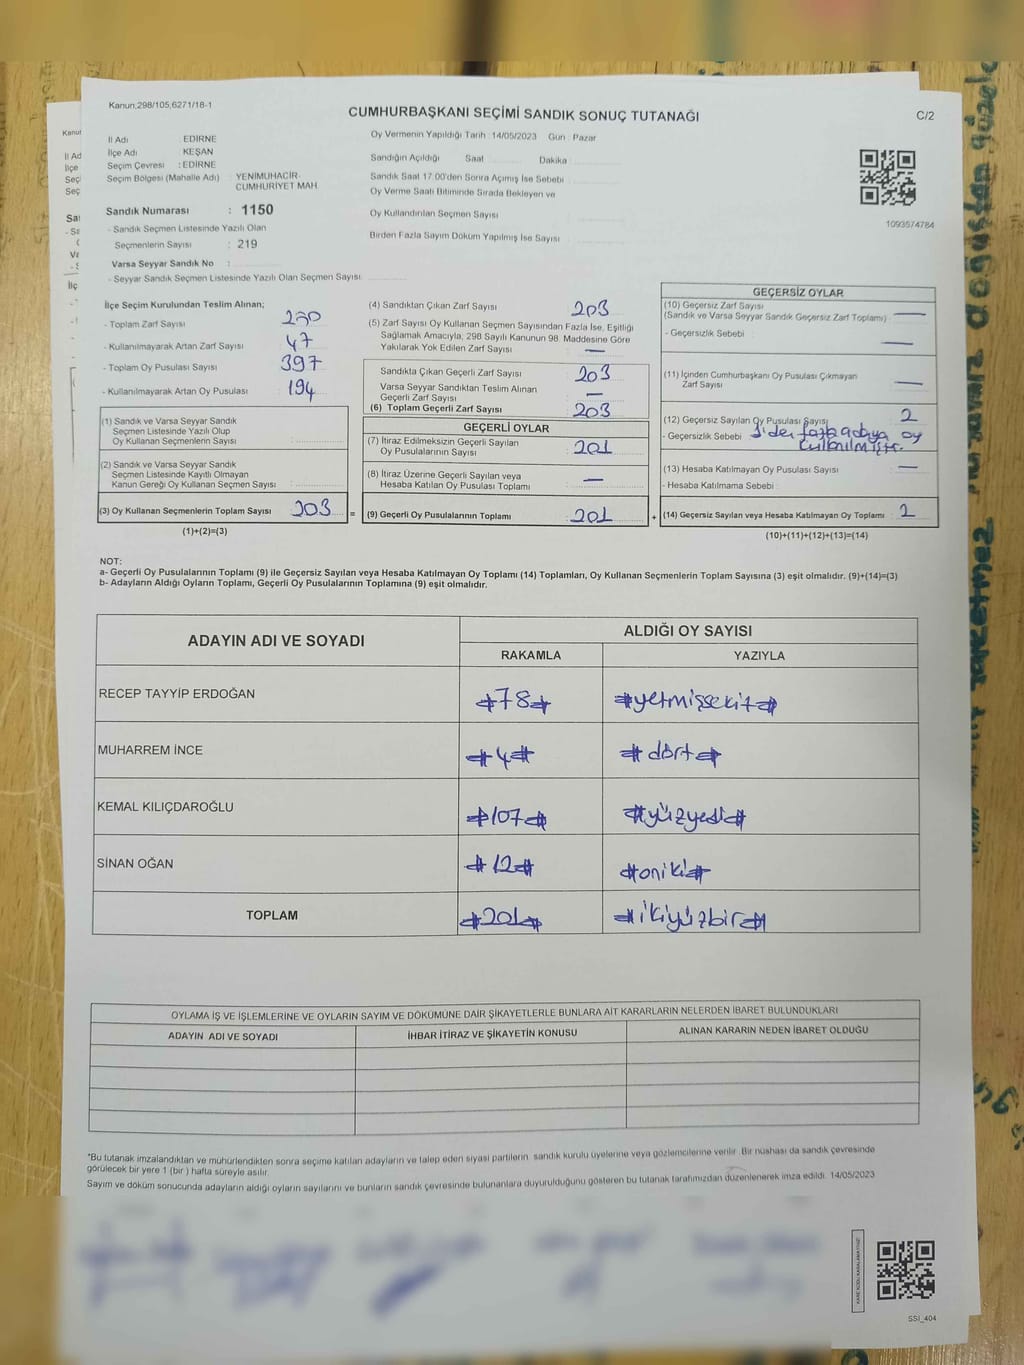 Kanun,298/105,6271/18-1
CUMHURBAŞKANI SEÇİMİ SANDIK SONUÇ TUTANAĞI
C/2
İl Adı EDİRNE
İlçe Adı KEŞAN
Seçim Çevresi : EDİRNE
Seçim Bölgesi (Mahalle Adı) : YENİMUHACİR-CUMHURİYET MAH.
Oy Vermenin Yapıldığı Tarih : 14/05/2023 Gün : Pazar
Sandığın Açıldığı Saat Dakika
Sandık Saat 17:00'den Sonra Açımış İse Sebebi
Oy Verme Saati Bitiminde Sırada Bekleyen ve
Oy Kullandırılan Seçmen Sayısı
Birden Fazla Sayım Döküm Yapılmış İse Sayısı
1093574784
Sandık Numarası : 1150
- Sandık Seçmen Listesinde Yazılı Olan
Seçmenlerin Sayısı : 219
Varsa Seyyar Sandık No :
- Seyyar Sandık Seçmen Listesinde Yazılı Olan Seçmen Sayısı
İlçe Seçim Kurulundan Teslim Alınan;
- Toplam Zarf Sayısı
- Kullanılmayarak Artan Zarf Sayısı 47
- Toplam Oy Pusulası Sayısı 397
- Kullanılmayarak Artan Oy Pusulası 194
(1) Sandık ve Varsa Seyyar Sandık
Seçmen Listesinde Yazılı Olup
Oy Kullanan Seçmenlerin Sayısı
(2) Sandık ve Varsa Seyyar Sandık
Seçmen Listesinde Kayıtlı Olmayan
Kanun Gereği Oy Kullanan Seçmen Sayısı
(3) Oy Kullanan Seçmenlerin Toplam Sayısı 203 =
(1)+(2)=(3)
(4) Sandıktan Çıkan Zarf Sayısı 203
(5) Zarf Sayısı Oy Kullanan Seçmen Sayısından Fazla İse, Eşitliği
Sağlamak Amacıyla, 298 Sayılı Kanunun 98. Maddesine Göre
Yakılarak Yok Edilen Zarf Sayısı —
Sandıkta Çıkan Geçerli Zarf Sayısı 203
Varsa Seyyar Sandıktan Teslim Alınan
Geçerli Zarf Sayısı —
(6) Toplam Geçerli Zarf Sayısı 203
GEÇERLİ OYLAR
(7) İtiraz Edilmeksizin Geçerli Sayılan
Oy Pusulalarının Sayısı 201
(8) İtiraz Üzerine Geçerli Sayılan veya
Hesaba Katılan Oy Pusulası Toplamı —
(9) Geçerli Oy Pusulalarının Toplamı 201 +
GEÇERSİZ OYLAR
(10) Geçersiz Zarf Sayısı
(Sandık ve Varsa Seyyar Sandık Geçersiz Zarf Toplamı) —
- Geçersizlik Sebebi : —
(11) İçinden Cumhurbaşkanı Oy Pusulası Çıkmayan
Zarf Sayısı —
(12) Geçersiz Sayılan Oy Pusulası Sayısı 2
- Geçersizlik Sebebi 1'den fazla adaya oy
kullanılmıştır.
(13) Hesaba Katılmayan Oy Pusulası Sayısı —
- Hesaba Katılmama Sebebi
(14) Geçersiz Sayılan veya Hesaba Katılmayan Oy Toplamı : 2
(10)+(11)+(12)+(13)=(14)
NOT:
a- Geçerli Oy Pusulalarının Toplamı (9) ile Geçersiz Sayılan veya Hesaba Katılmayan Oy Toplamı (14) Toplamları, Oy Kullanan Seçmenlerin Toplam Sayısına (3) eşit olmalıdır. (9)+(14)=(3)
b- Adayların Aldığı Oyların Toplamı, Geçerli Oy Pusulalarının Toplamına (9) eşit olmalıdır.
ADAYIN ADI VE SOYADI ALDIĞI OY SAYISI
RAKAMLA YAZIYLA
RECEP TAYYİP ERDOĞAN #78# #yetmişsekiz#
MUHARREM İNCE #4# #dört#
KEMAL KILIÇDAROĞLU #107# #yüzyedi#
SİNAN OĞAN #12# #oniki#
TOPLAM #201# #ikiyüzbir#
OYLAMA İŞ VE İŞLEMLERİNE VE OYLARIN SAYIM VE DÖKÜMÜNE DAİR ŞİKAYETLERLE BUNLARA AİT KARARLARIN NELERDEN İBARET BULUNDUKLARI
ADAYIN ADI VE SOYADI İHBAR İTİRAZ VE ŞİKAYETİN KONUSU ALINAN KARARIN NEDEN İBARET OLDUĞU
"Bu tutanak imzalandıktan ve mühürlendikten sonra seçime katılan adayların ve talep eden siyasi partilerin sandık kurulu üyelerine veya gözlemcilerine verilir. Bir nüshası da sandık çevresinde
görülecek bir yere 1 (bir ) hafta süreyle asılır.
Sayım ve döküm sonucunda adayların aldığı oyların sayılarını ve bunların sandık çevresinde bulunanlara duyurulduğunu gösteren bu tutanak tarafımızdan düzenlenerek imza edildi. 14/05/2023
SSI_404